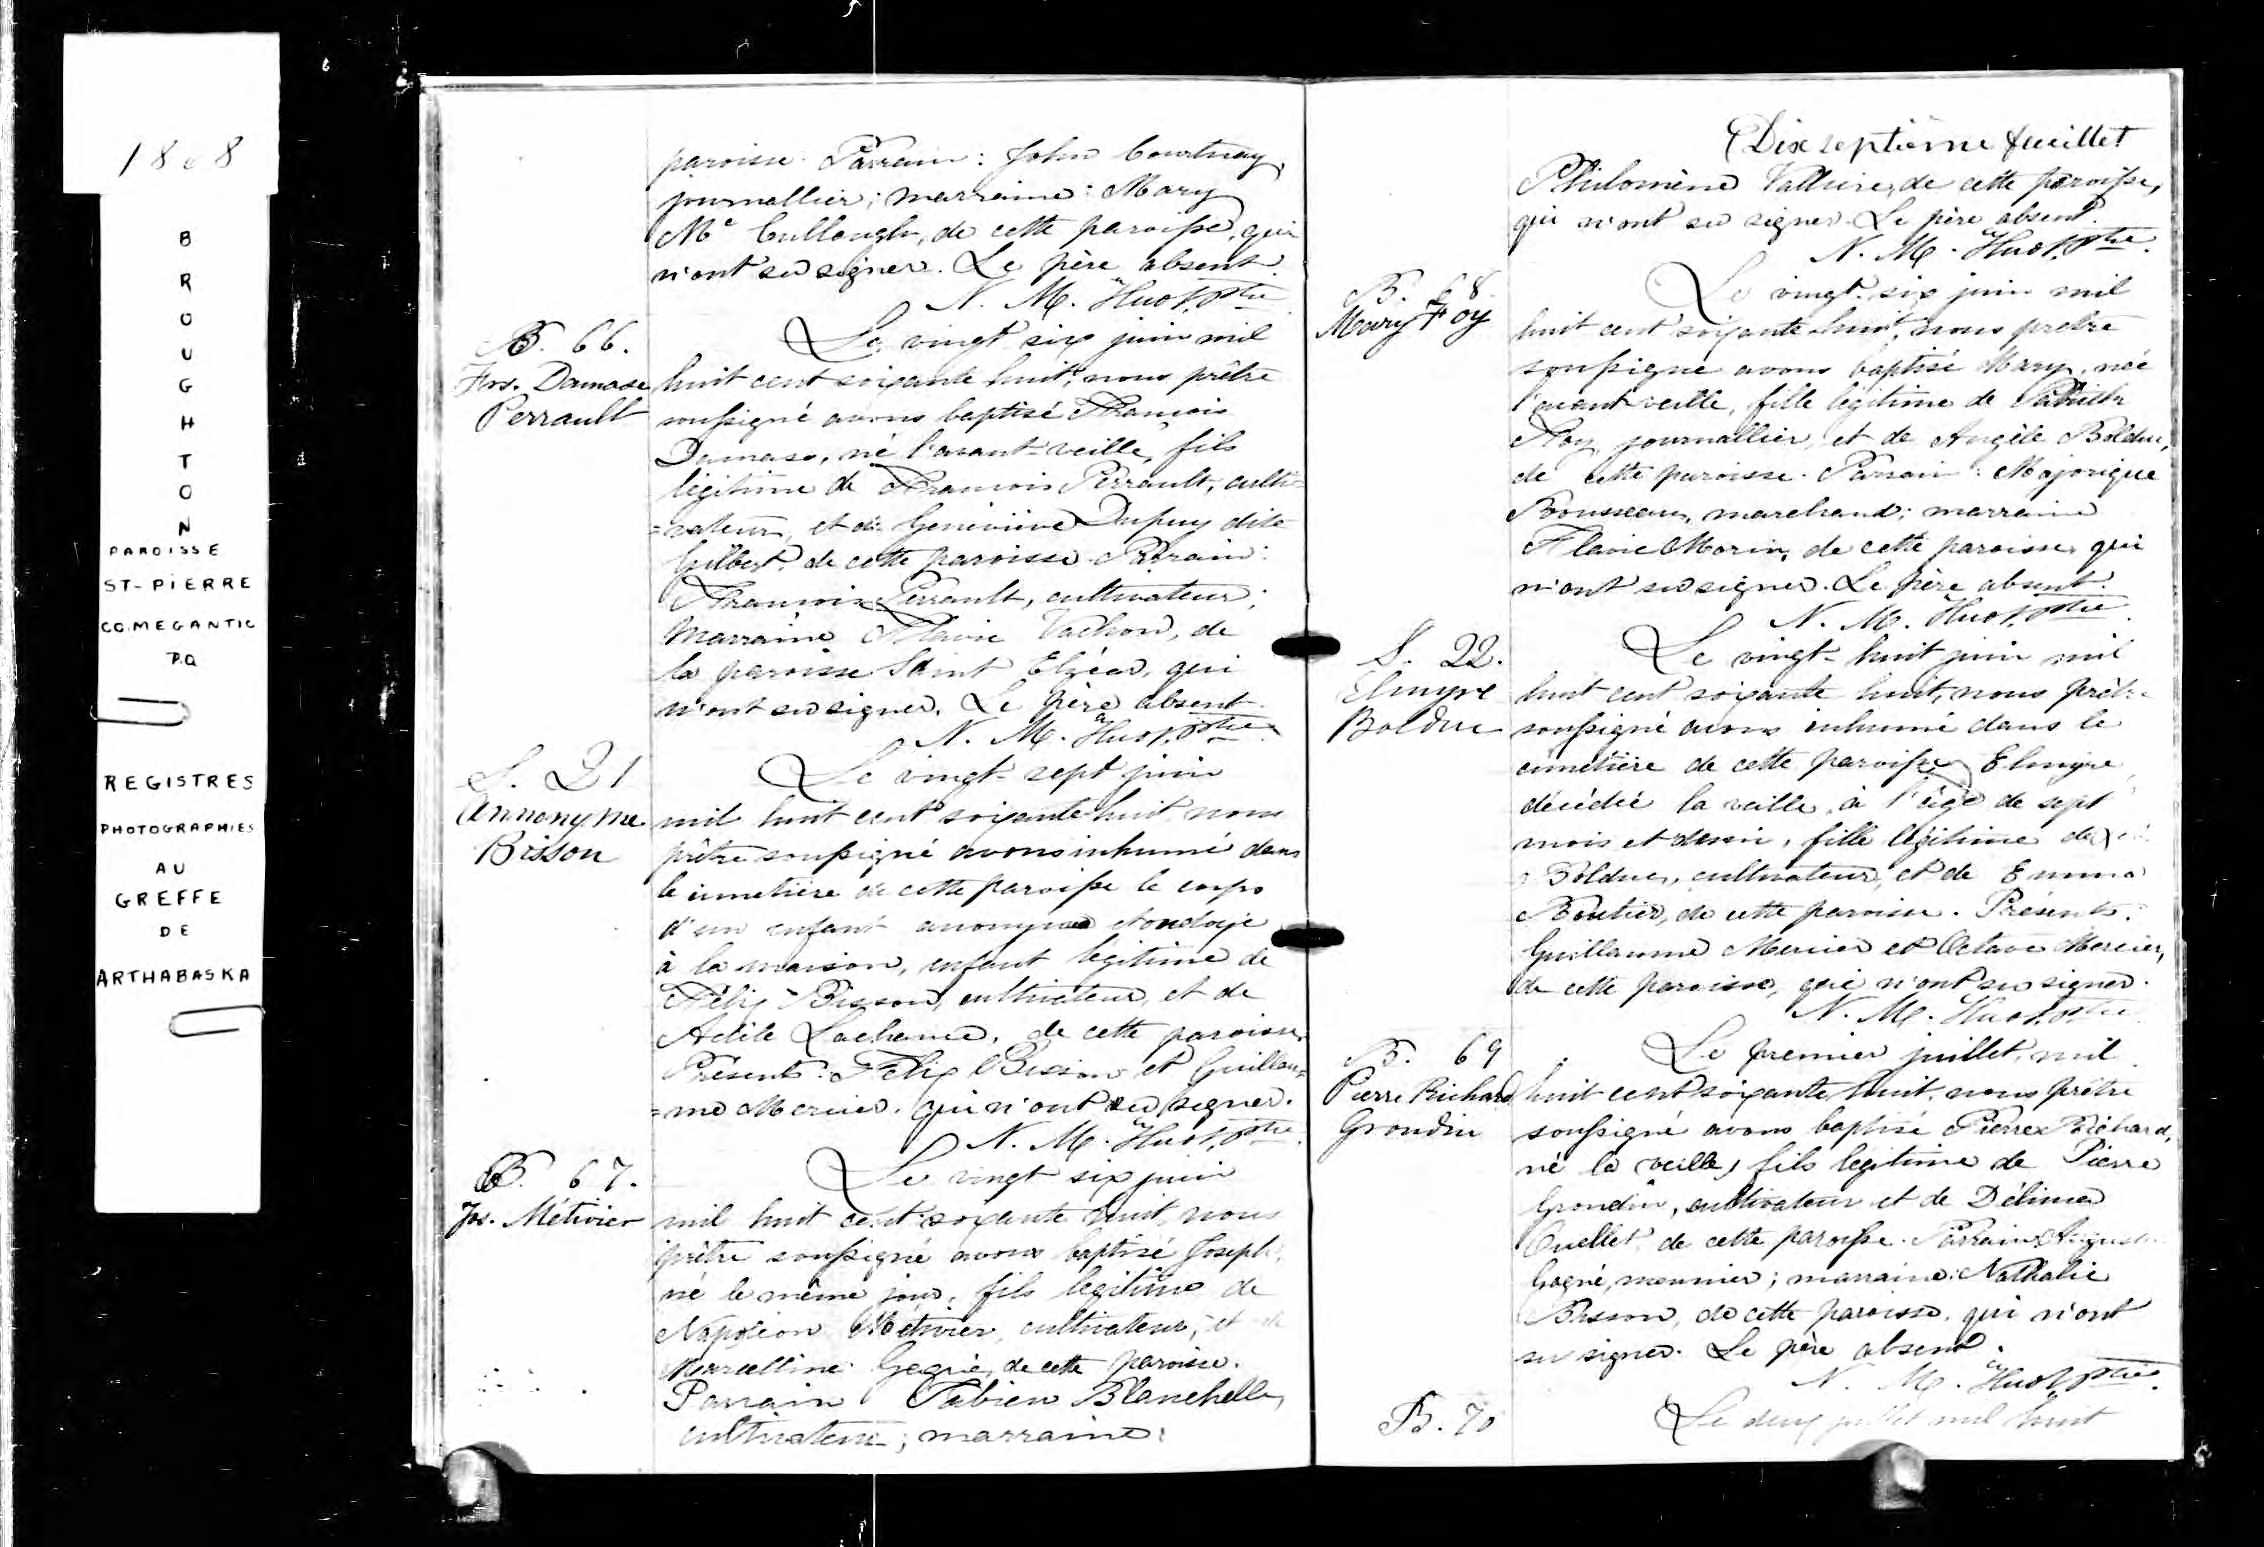 18 8
B
R
O
U
G
H
T
O
N
PAROISSE
ST-PIERRE
CO. MEGANTIC
P.Q
REGISTRES
PHOTOGRAPHIES
AU
GREFFE
DE
ARTHABASKA
paroisse. Parrain: John Courtnay,
journallier; marraine: Mary
Mc Cullough, de cette paroisse, qui
n'ont su signer. Le père absent.
N. M. Huot, Ptre
B. 66.
Frs. Damase
Perrault
Le vingt six juin mil
huit cent soixante huit, nous prêtre
soussigné avons baptisé François
Damase, né l'avant-veille, fils
légitime de François Perrault, culti=
=vateur, et de Geneviève Dupuy dite
Gilbert, de cette paroisse. Parrain:
François Perrault, cultivateur;
marraine Flavie Vachon, de
la paroisse Saint Elzéar, qui
n'ont su signer. Le père absent.
N. M. Huot, Ptre
S. 21
Annonyme
Bisson
Le vingt-sept juin
mil huit cent soixante huit nous
prêtre soussigné avons inhumé dans
le cimetière de cette paroisse le corps
d'un enfant anonyme et ondoyé
à la maison, enfant légitime de
Félix Bisson, cultivateur, et de
Adèle Lachance, de cette paroisse.
Présents: Félix Bisson et Guillau=
=me Mercier, qui n'ont su signer.
N. M. Huot, Ptre
B. 67.
Jos. Métivier
Le vingt six juin
mil huit cent soixante huit, nous
prêtre soussigné avons baptisé Joseph,
né le même jour, fils légitime de
Napoléon Métivier, cultivateur, et de
Marcelline Gagné, de cette paroisse.
Parrain Fabien Blanchette,
cultivateur; marraine:
Dix septième feuillet
Philomène Vallière, de cette paroisse,
qui n'ont su signer. Le père absent.
N. M. Huot, Ptre
B. 68
Mary Foy
Le vingt-six juin mil
huit cent soixante huit, nous prêtre
soussigné avons baptisé Mary, née
l'avant veille, fille légitime de
Foy, journallier, et de Angèle Bolduc,
de cette paroisse. Parrain: Majorique
Brousseau, marchand; marraine
Flavie Morin, de cette paroisse, qui
n'ont su signer. Le père absent.
N. M. Huot, Ptre
S. 22.
Elmyre
Bolduc
Le vingt-huit juin mil
huit cent soixante huit, nous prêtre
soussigné avons inhumé dans le
cimetière de cette paroisse Elmyre,
décédée la veille, à l'âge de sept
mois et demi, fille légitime de
Bolduc, cultivateur, et de Emma
Routier, de cette paroisse. Présents:
Guillaume Mercier et Octave Mercier,
de cette paroisse, qui n'ont su signer.
N. M. Huot, Ptre
B. 69
Pierre Richard
Grondin
Le premier juillet, mil
huit cent soixante huit, nous prêtre
soussigné avons baptisé Pierre Richard,
né la veille, fils légitime de Pierre
Grondin, cultivateur et de Délima
Ouellet de cette paroisse. Parrain
Gagné, meunier; marraine: Nathalie
Bisson, de cette paroisse, qui n'ont
su signer. Le père absent.
N. M. Huot, Ptre
B. 70
Le deux juillet mil huit